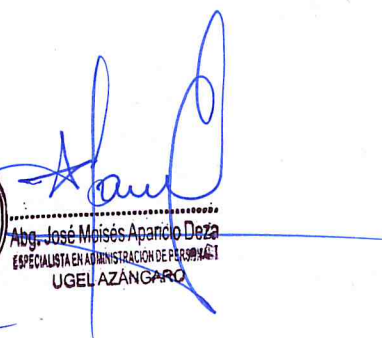 Abg. José Moisés Aparicio Deza
ESPECIALISTA EN ADMINISTRACIÓN DE PERSONAL I
UGEL AZÁNGARO